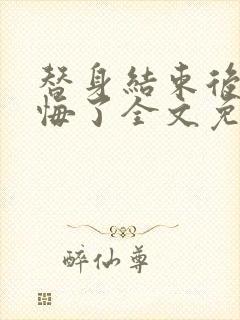 替身結束後
悔了全文免
醉仙尊